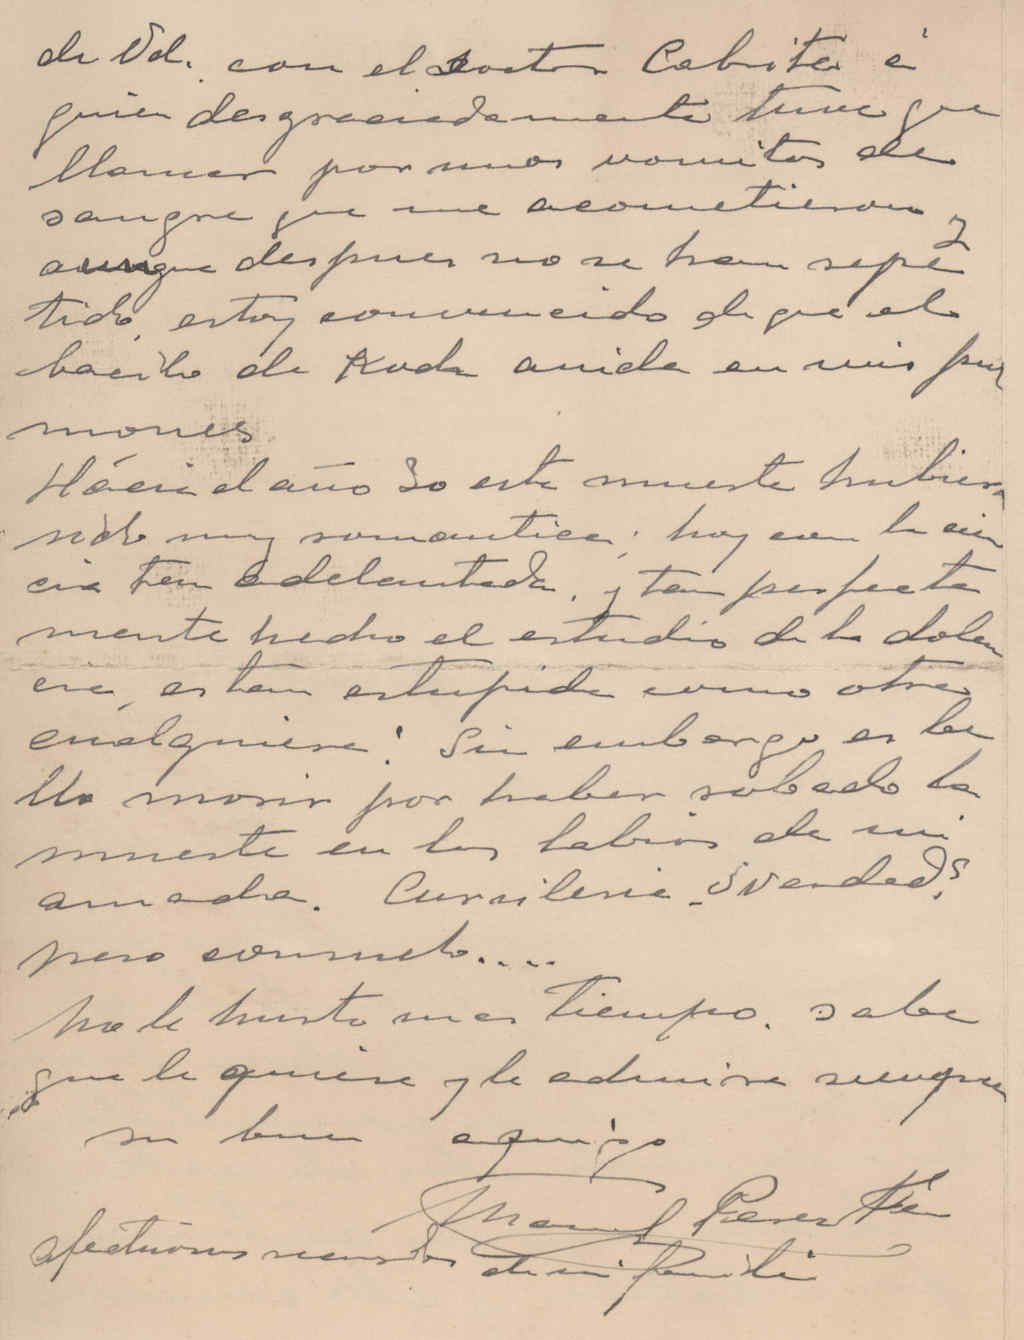 de Vd. con el doctor Cabrita á
quien desgraciadamente tuve que
llamar por unos vomitos de
sangre que me acometieron, y
aunque despues no se han repe
tido, estoy convencido de que el
bacilo de Koch anida en mis pul
mones
Hácia el año 30 esta muerte hubiera
sido muy romantica; hoy con la cien
cia tan adelantada, y tan perfecta
mente hecho el estudio de la dolen
cia, es tan estupida como otra
cualquiera! Sin embargo es be
llo morir por haber robado la
muerte en los labios de mi
amada. Cursileria ¿verdad?
pero consuelo....
No le hurto mas tiempo. Sabe
que le quiere y le admira siempre
su buen amigo
Manuel Perez
afectuosos recuerdos de mi familia